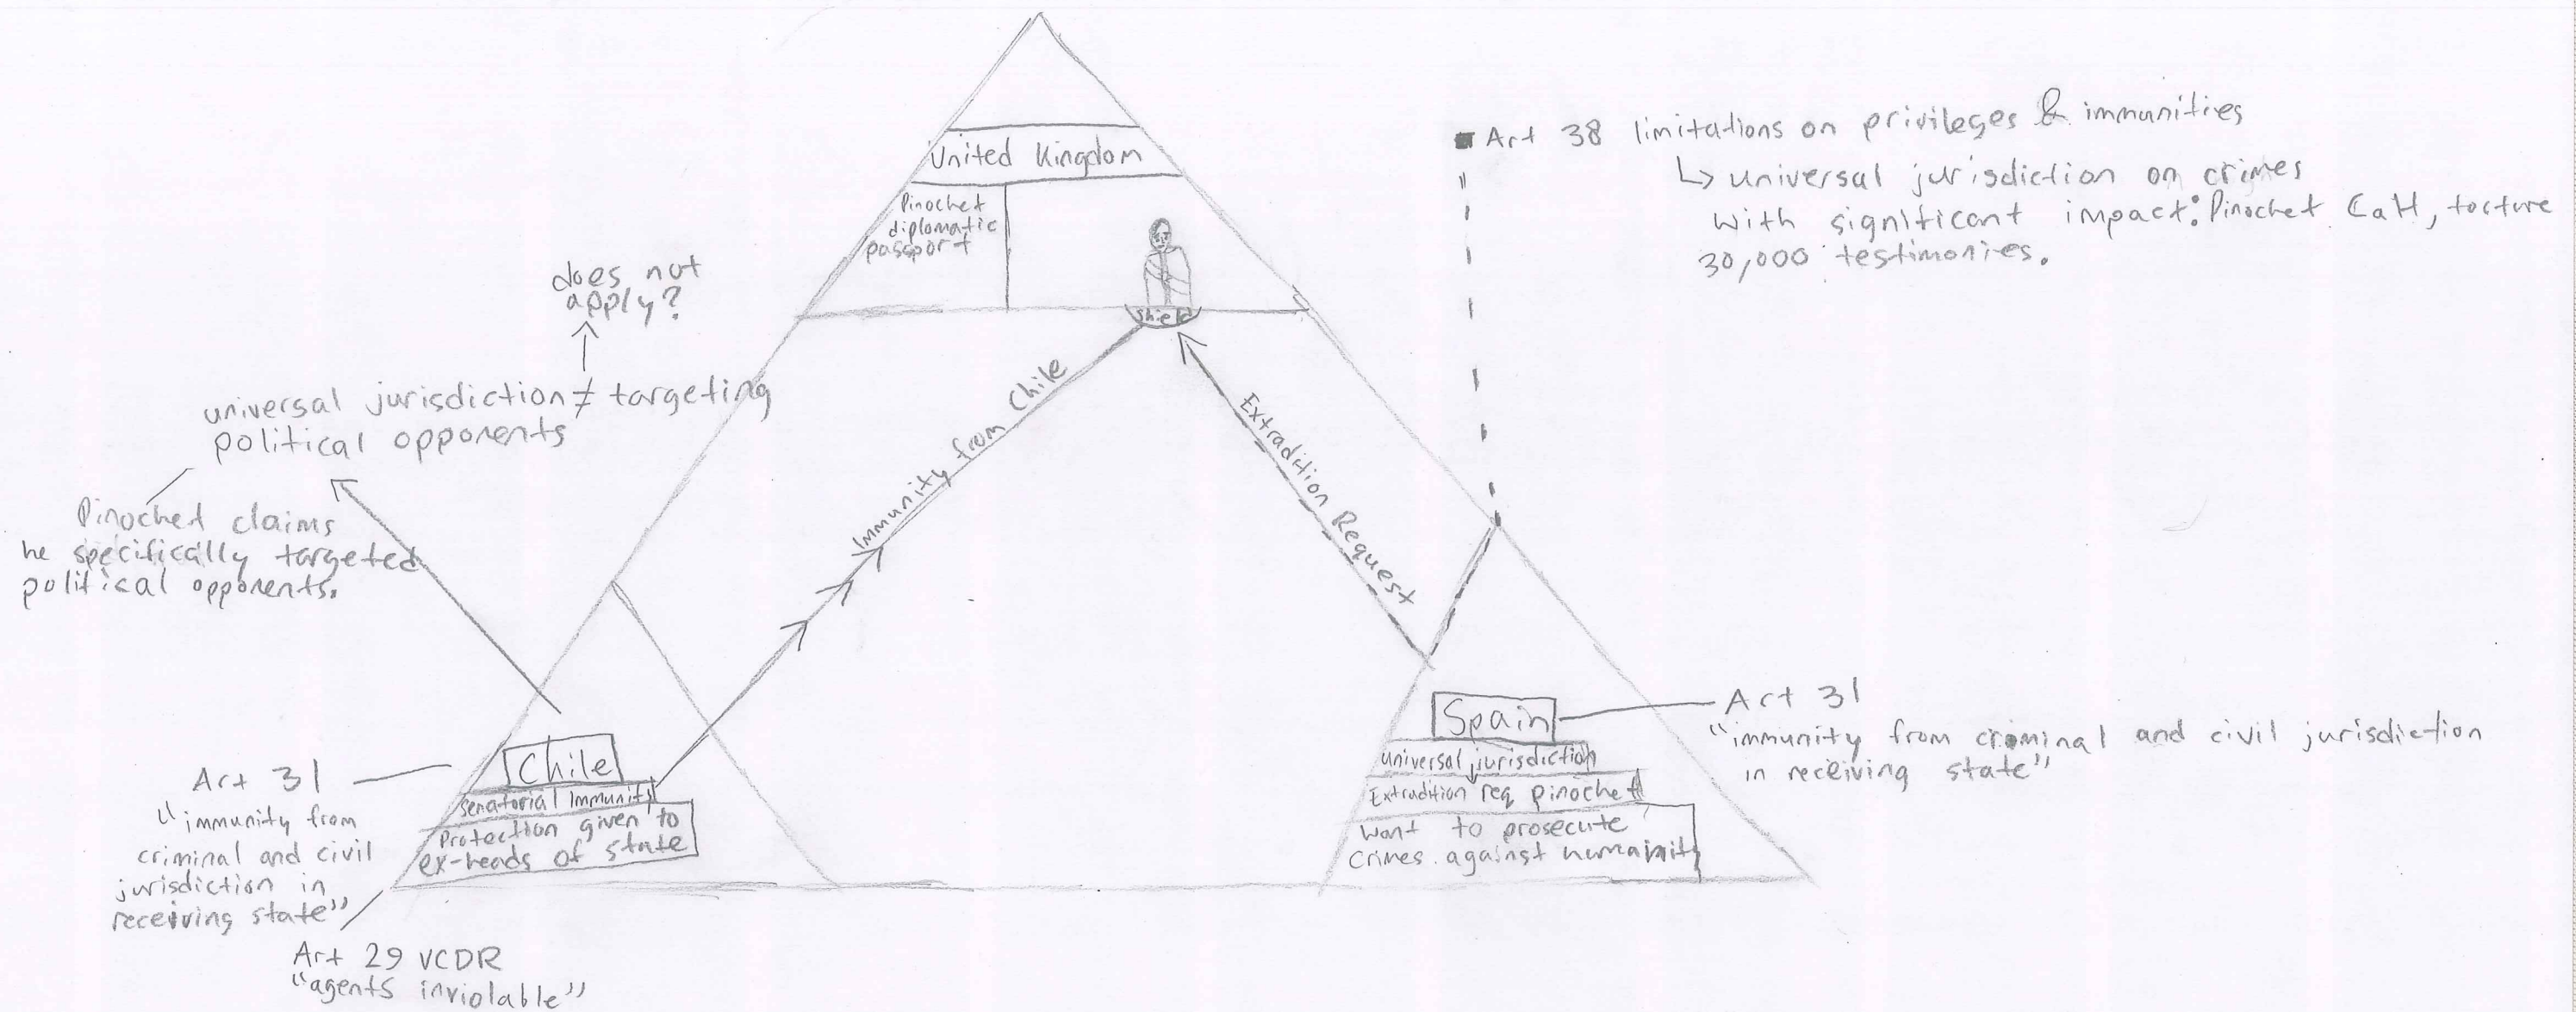 United Kingdom
Pinochet
diplomatic
passport
shield
Art 38 limitations on privileges & immunities
↳ universal jurisdiction on crimes
with significant impact: Pinochet CaH, torture
30,000 testimonies.
does not
apply?
universal jurisdiction ≠ targeting
political opponents
Pinochet claims
he specifically targeted
political opponents.
Immunity from Chile
Extradition Request
Chile
Senatorial Immunity
Protection given to
ex-heads of state
Art 31
"immunity from
criminal and civil
jurisdiction in
receiving state"
Art 29 VCDR
"agents inviolable"
Spain
Universal jurisdiction
Extradition req Pinochet
Want to prosecute
Crimes against humanity
Art 31
"immunity from criminal and civil jurisdiction
in receiving state"